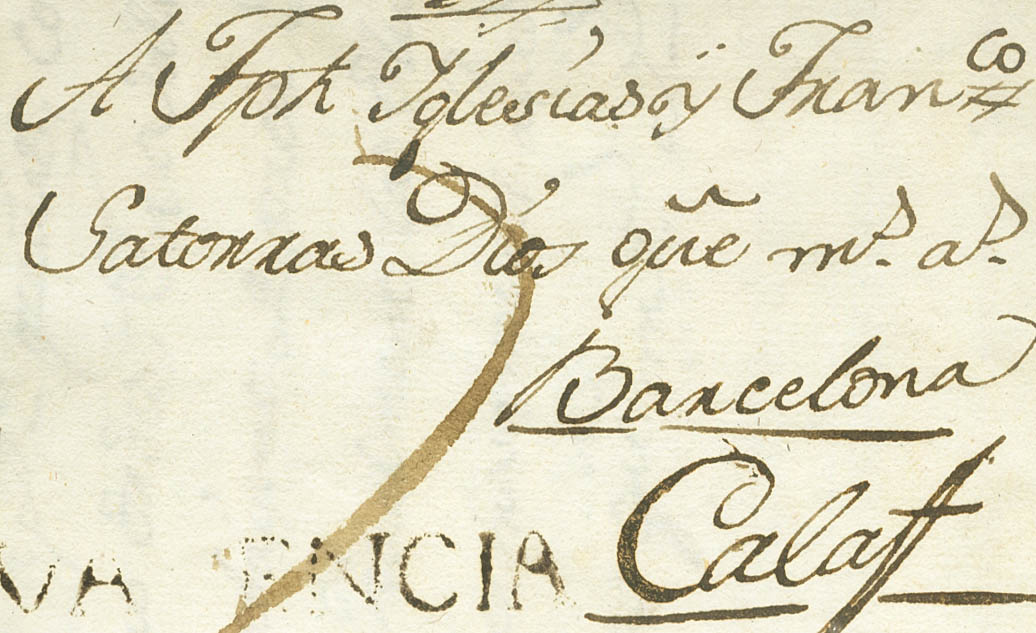 A Jph Yglesias, y Franco
Satorras Dios que ms. as.
Barcelona
Calaf
VA ENCIA